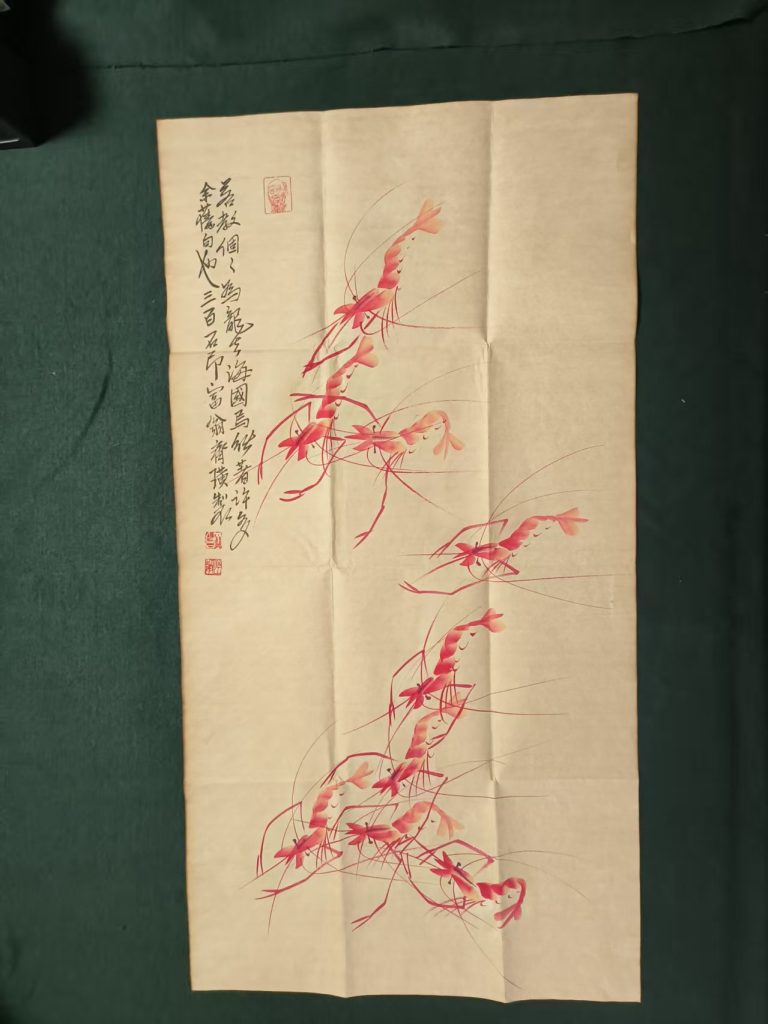 若教個々為龍去海國焉能著許多
余舊句也三百石印富翁齊璜製